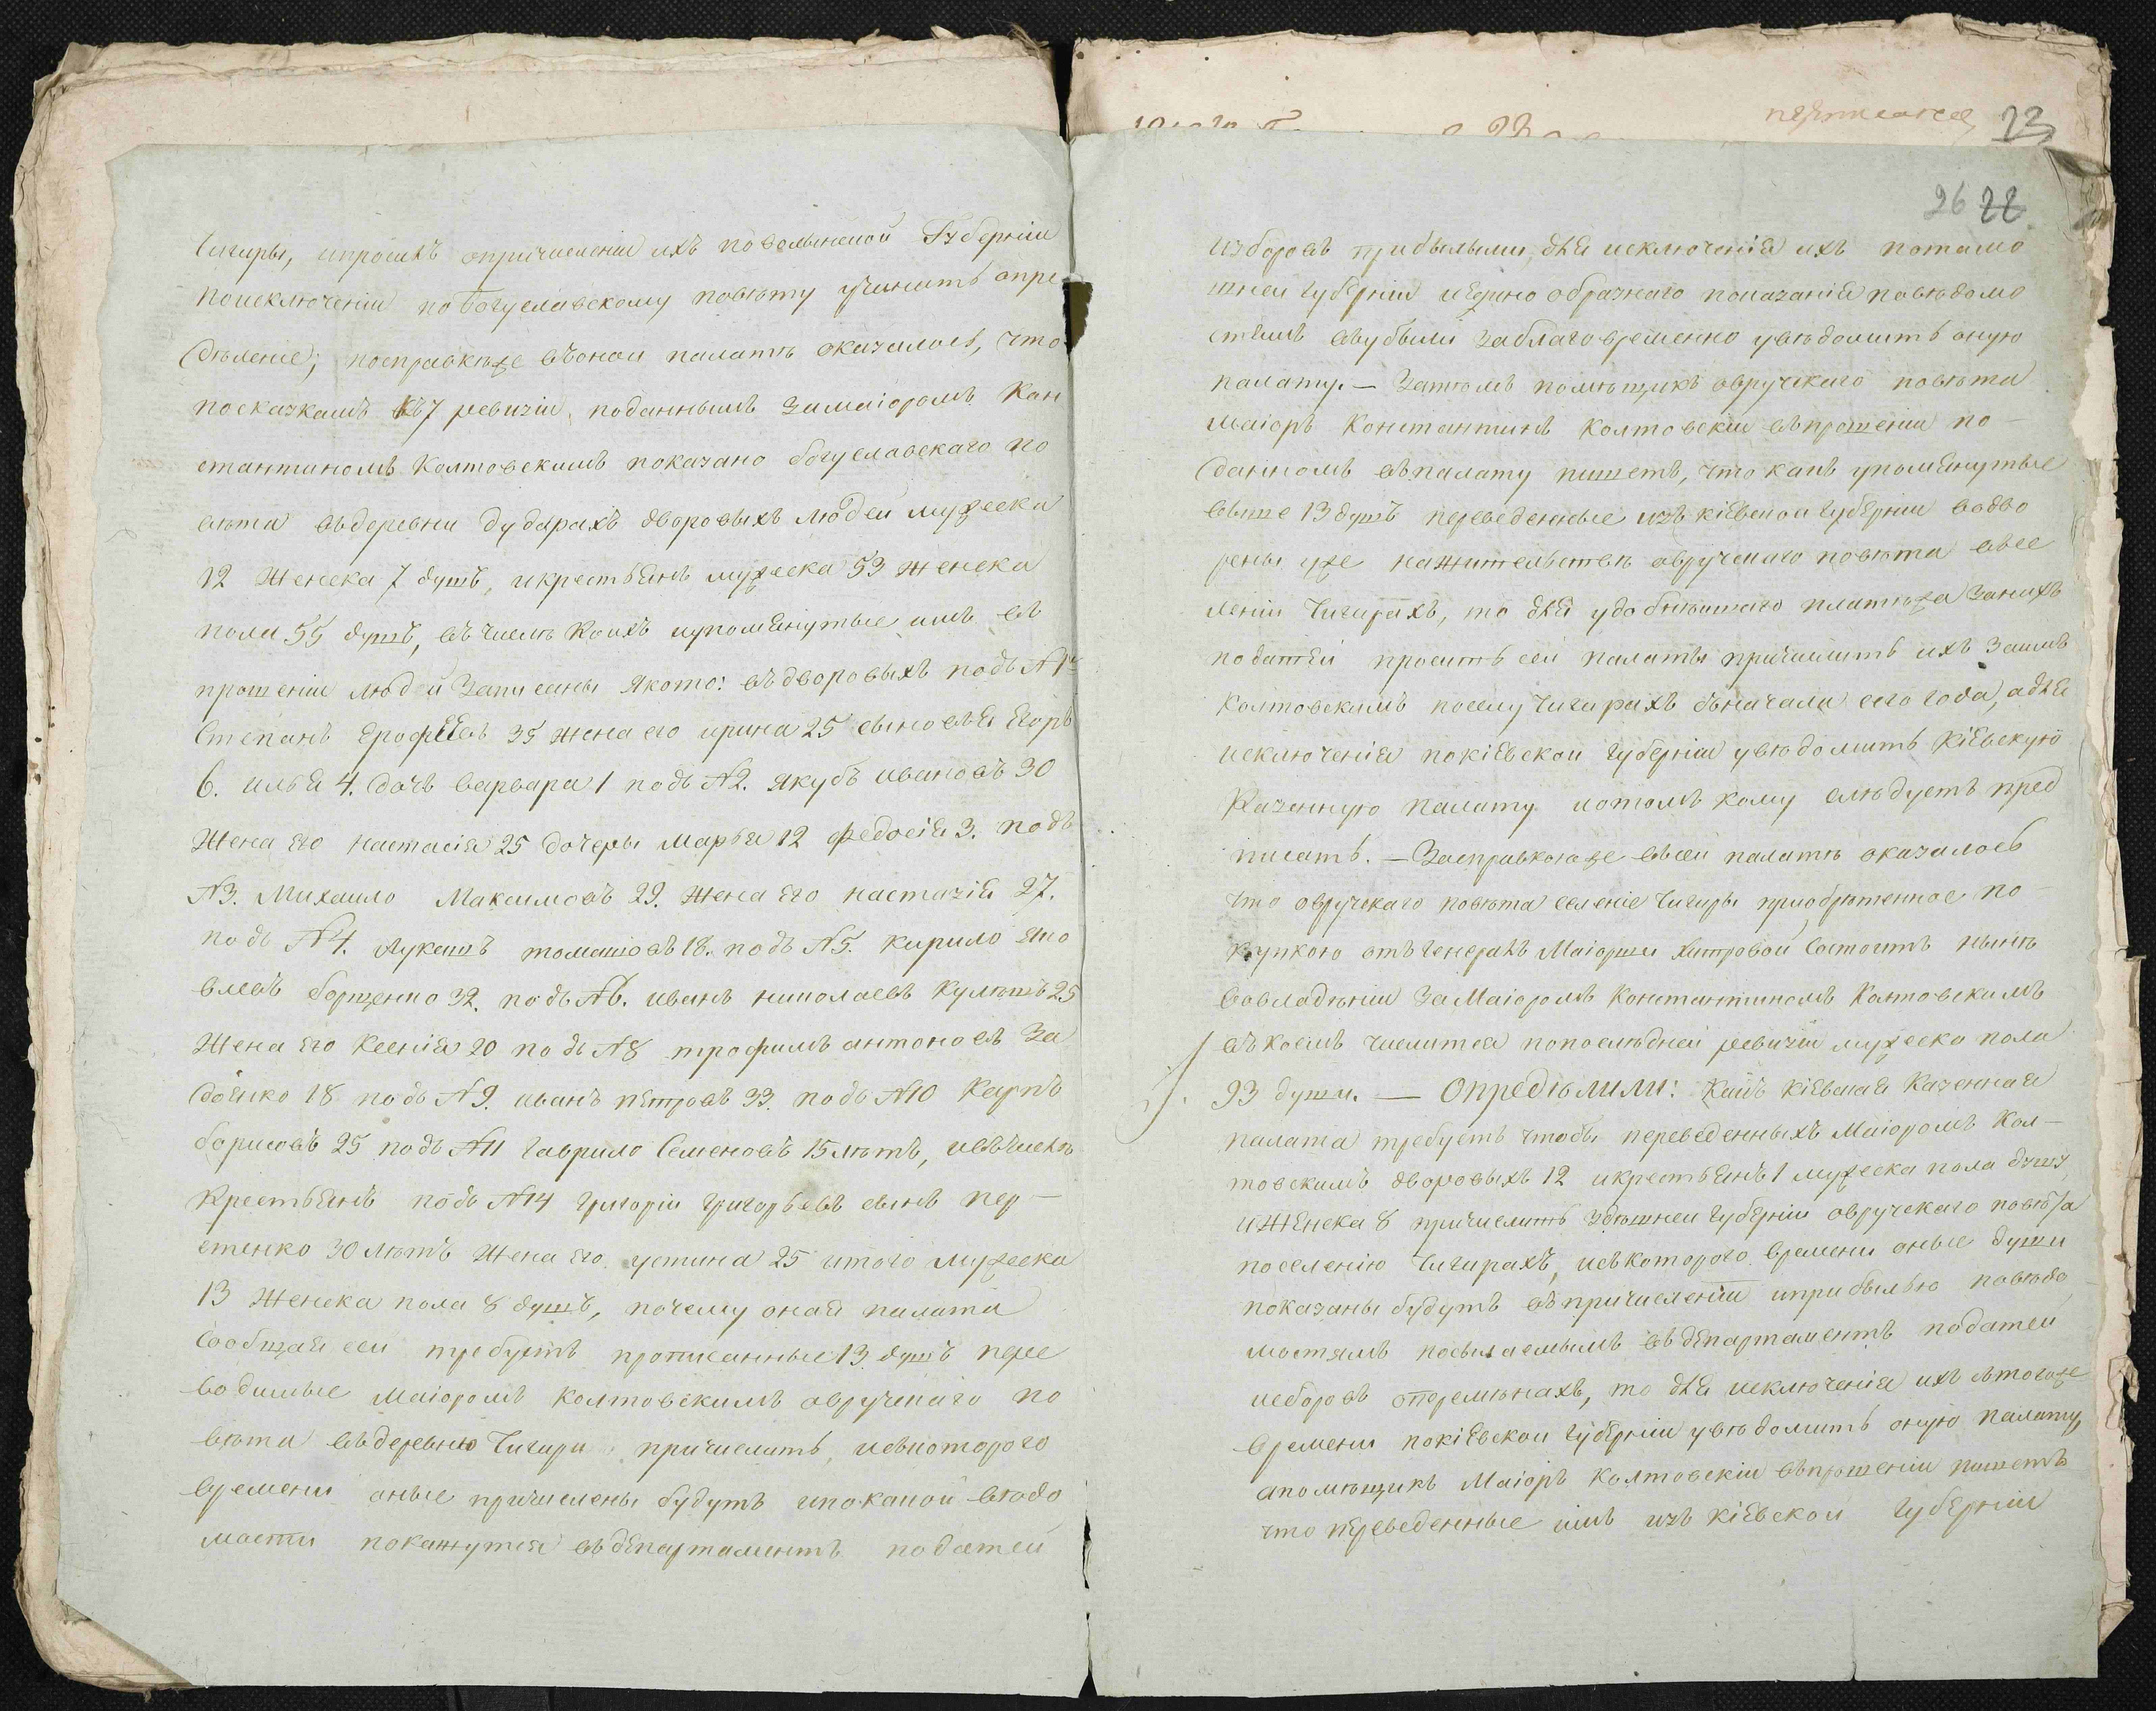 Чигиры, ипроситъ опричисленіи ихъ поволынской Губерніи
поисключеніи побогуславскому повѣту учинить опре
дѣленіе; посправкѣже въоной палатѣ оказалось, что
посказкамъ къ7 ревизіи, поданнымъ замаіоромъ Кон
стантиномъ Колтовскимъ показано богуславскаго по
вѣта въдеревни дударахъ дворовыхъ людей мужеска
12 женска 7 душъ, икрестьянъ мужеска 53 женска
пола 55 душъ, въчислѣ коихъ иупомянутые имъ въ
прошеніи людей Записаны Якото: въдворовыхъ подъ №1м
Степанъ Ерофѣевъ 35 жена его ирина 25 сыновья Егоръ
6. илья 4. дочь варвара 1 подъ №2. якубъ ивановъ 30
Жена его настасія 25 дочеры марья 12 федосія 3. подъ
№3. Михаило Максимовъ 29. жена его настазія 27.
подъ №4. лукашъ томашовъ 18. подъ №5. кирило яко
влевъ борщенко 32. подъ №6. иванъ николаевъ кулѣшъ 25
Жена его ксенія 20 подъ №8 трофимъ антоновъ За
доенко 18 подъ №9. иванъ петровъ 33. подъ №10 карпъ
борисовъ 25 подъ №11 гаврило Семеновъ 15 лѣтъ, ивъчислѣ
крестьянъ подъ №14 григорій григорьевъ сынъ пер-
стенко 30 лѣтъ жена его устина 25 итого мужеска
13 женска пола 8 душъ, почему оная палата
Сообщая сей требуетъ прописанные 13 душъ пере
водимые маіоромъ колтовскимъ овручскаго по
вѣта въдеревню Чигири причислить, исъкоторого
времени оные причислены будутъ ипокакой вѣдо
мости покажутся въдепартаментъ податей
26 22
23
изборовъ прибылыми, для исключенія ихъ потамо
шней губерніи иединообразнаго показанія повѣдомо
стямъ вубыли заблаговременно увѣдомить оную
палату. — Затѣмъ помѣщикъ овручскаго повѣта
маіоръ Константинъ Колтовскіи въпрошеніи по-
данномъ въпалату пишетъ, что какъ упомянутые
выше 13 душъ переведенные изъ кіевской губерніи водво
рены уже нажительствѣ овручскаго повѣта въсе
леніи Чигирахъ, то для удобнѣйшаго платежа Занихъ
податей проситъ сей палаты причислить ихъ Заимъ
Колтовскимъ поселу Чигирахъ сначала сего года, адля
исключенія покіевской губерніи увѣдомить кіевскую
Казенную палату иотомъ кому слѣдуетъ пред
писать. — Засправкоюже въсей палатѣ оказалось
что овручскаго повѣта селеніе Чигиры приобрѣтенное по-
купкою отъ Генералъ Маіорши хитровой Состоитъ нынѣ
вовладѣніи ЗаМаіоромъ Константиномъ Колтовскимъ
въкоемъ числится попослѣдней ревизіи мужеска пола
93 души. — Опредѣлили: Какъ кіевская Казенная
палата требуетъ чтобы переведенныхъ Маіоромъ Кол-
товскимъ дворовыхъ 12 икрестьянъ 1 мужеска пола душу
иженска 8 причислить здѣшней губерніи овручскаго повѣта
поселенію Чигирахъ, исъкоторого времени оные души
показаны будутъ въпричисленіи иприбылью повѣдо
мостямъ посылаемымъ въдепартаментъ податей
исборовъ оперемѣнахъ, то для исключенія ихъ стогоже
времени покіевской губерніи увѣдомить оную палату,
апомѣщикъ Маіоръ Колтовскіи въпрошеніи пишетъ
что переведенные имъ изъ кіевской губерніи